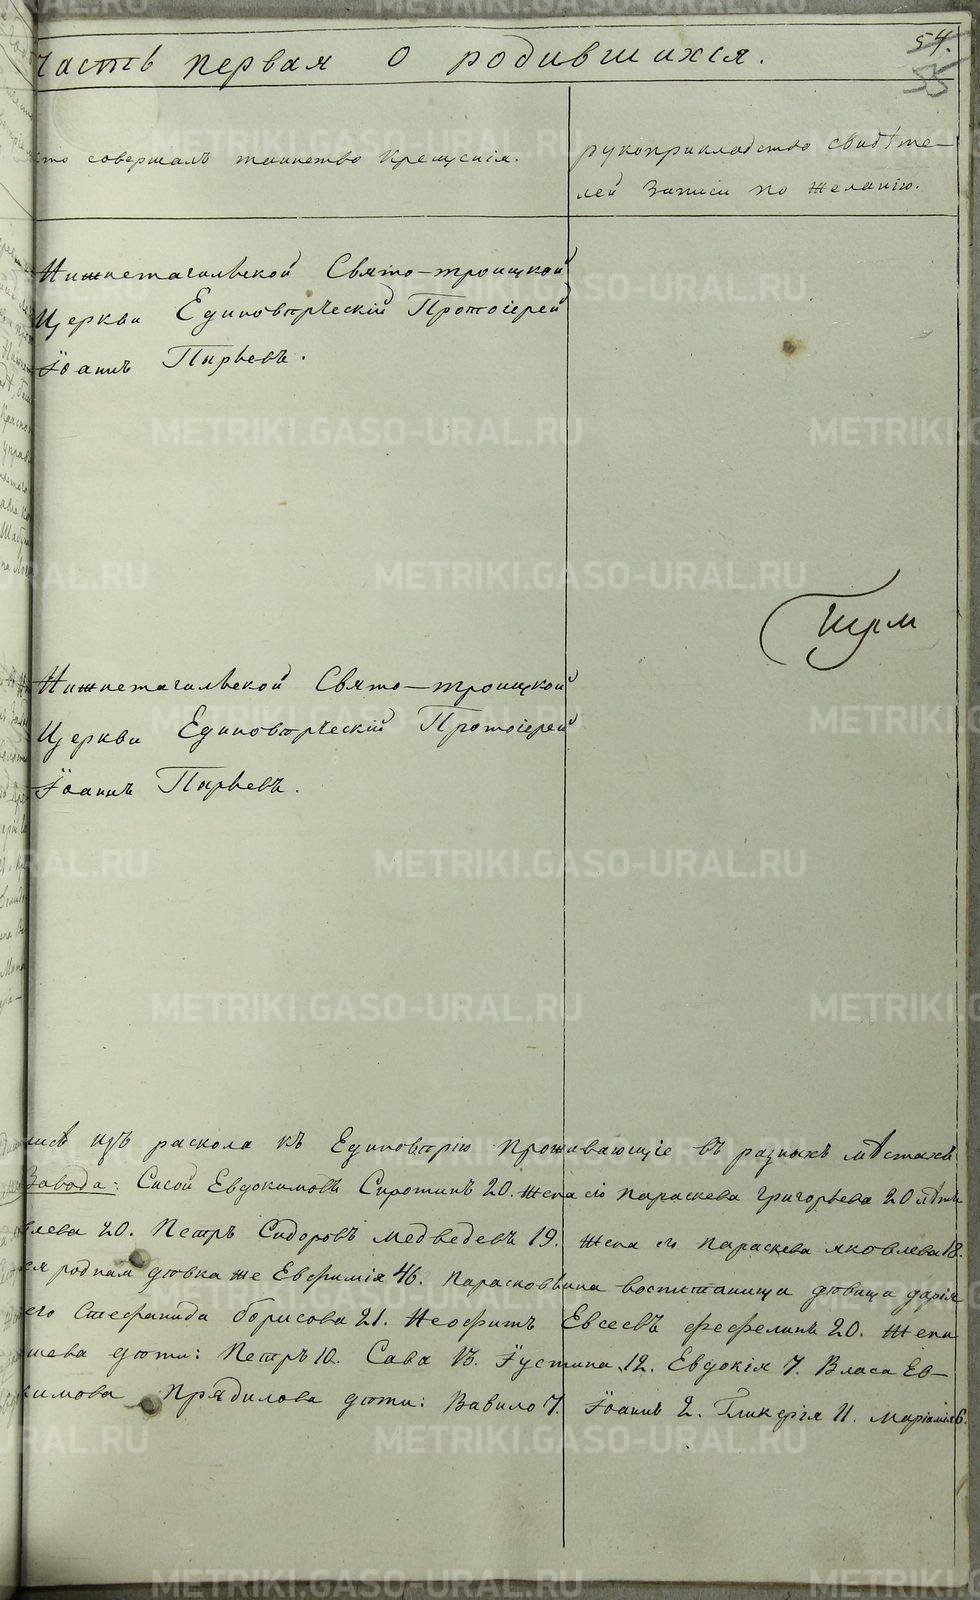 54.
55
Часть первая О родившихся.
кто совершалъ таинство крещенія.
рукоприкладство свидѣте-
лей записи по желанію.
Нижнетагильской Свято-троицкой
Церкви Единовѣрческій Протоіерей
Іоаннъ Пырьевъ.
Нижнетагильской Свято-троицкой
Церкви Единовѣрческій Протоіерей
Іоаннъ Пырьевъ.
лись изъ раскола къ Единовѣрію проживающіе въ разныхъ мѣстахъ
Завода: Сисой Евдокимовъ Сиротинъ 20. жена его параскева григорьева 20 лѣтъ
влева 20. Петръ Сидоровъ медведевъ 19. жена его параскева яковлева 18.
ея родная дѣвка же Евфимія 46. Парасковьина воспитаница дѣвица дарія
его Стефанида борисова 21. Неофитъ Евсеевъ фефелинъ 20. жена
шева дѣти: Петръ 10. Сава 13. Іустина 12. Евдокія 7. Власа Ев-
кимова Прядилова дѣти: Вавило 7. Іоаннъ 2. Гликерія 11. маріамія 6.
METRIKI.GASO-URAL.RU